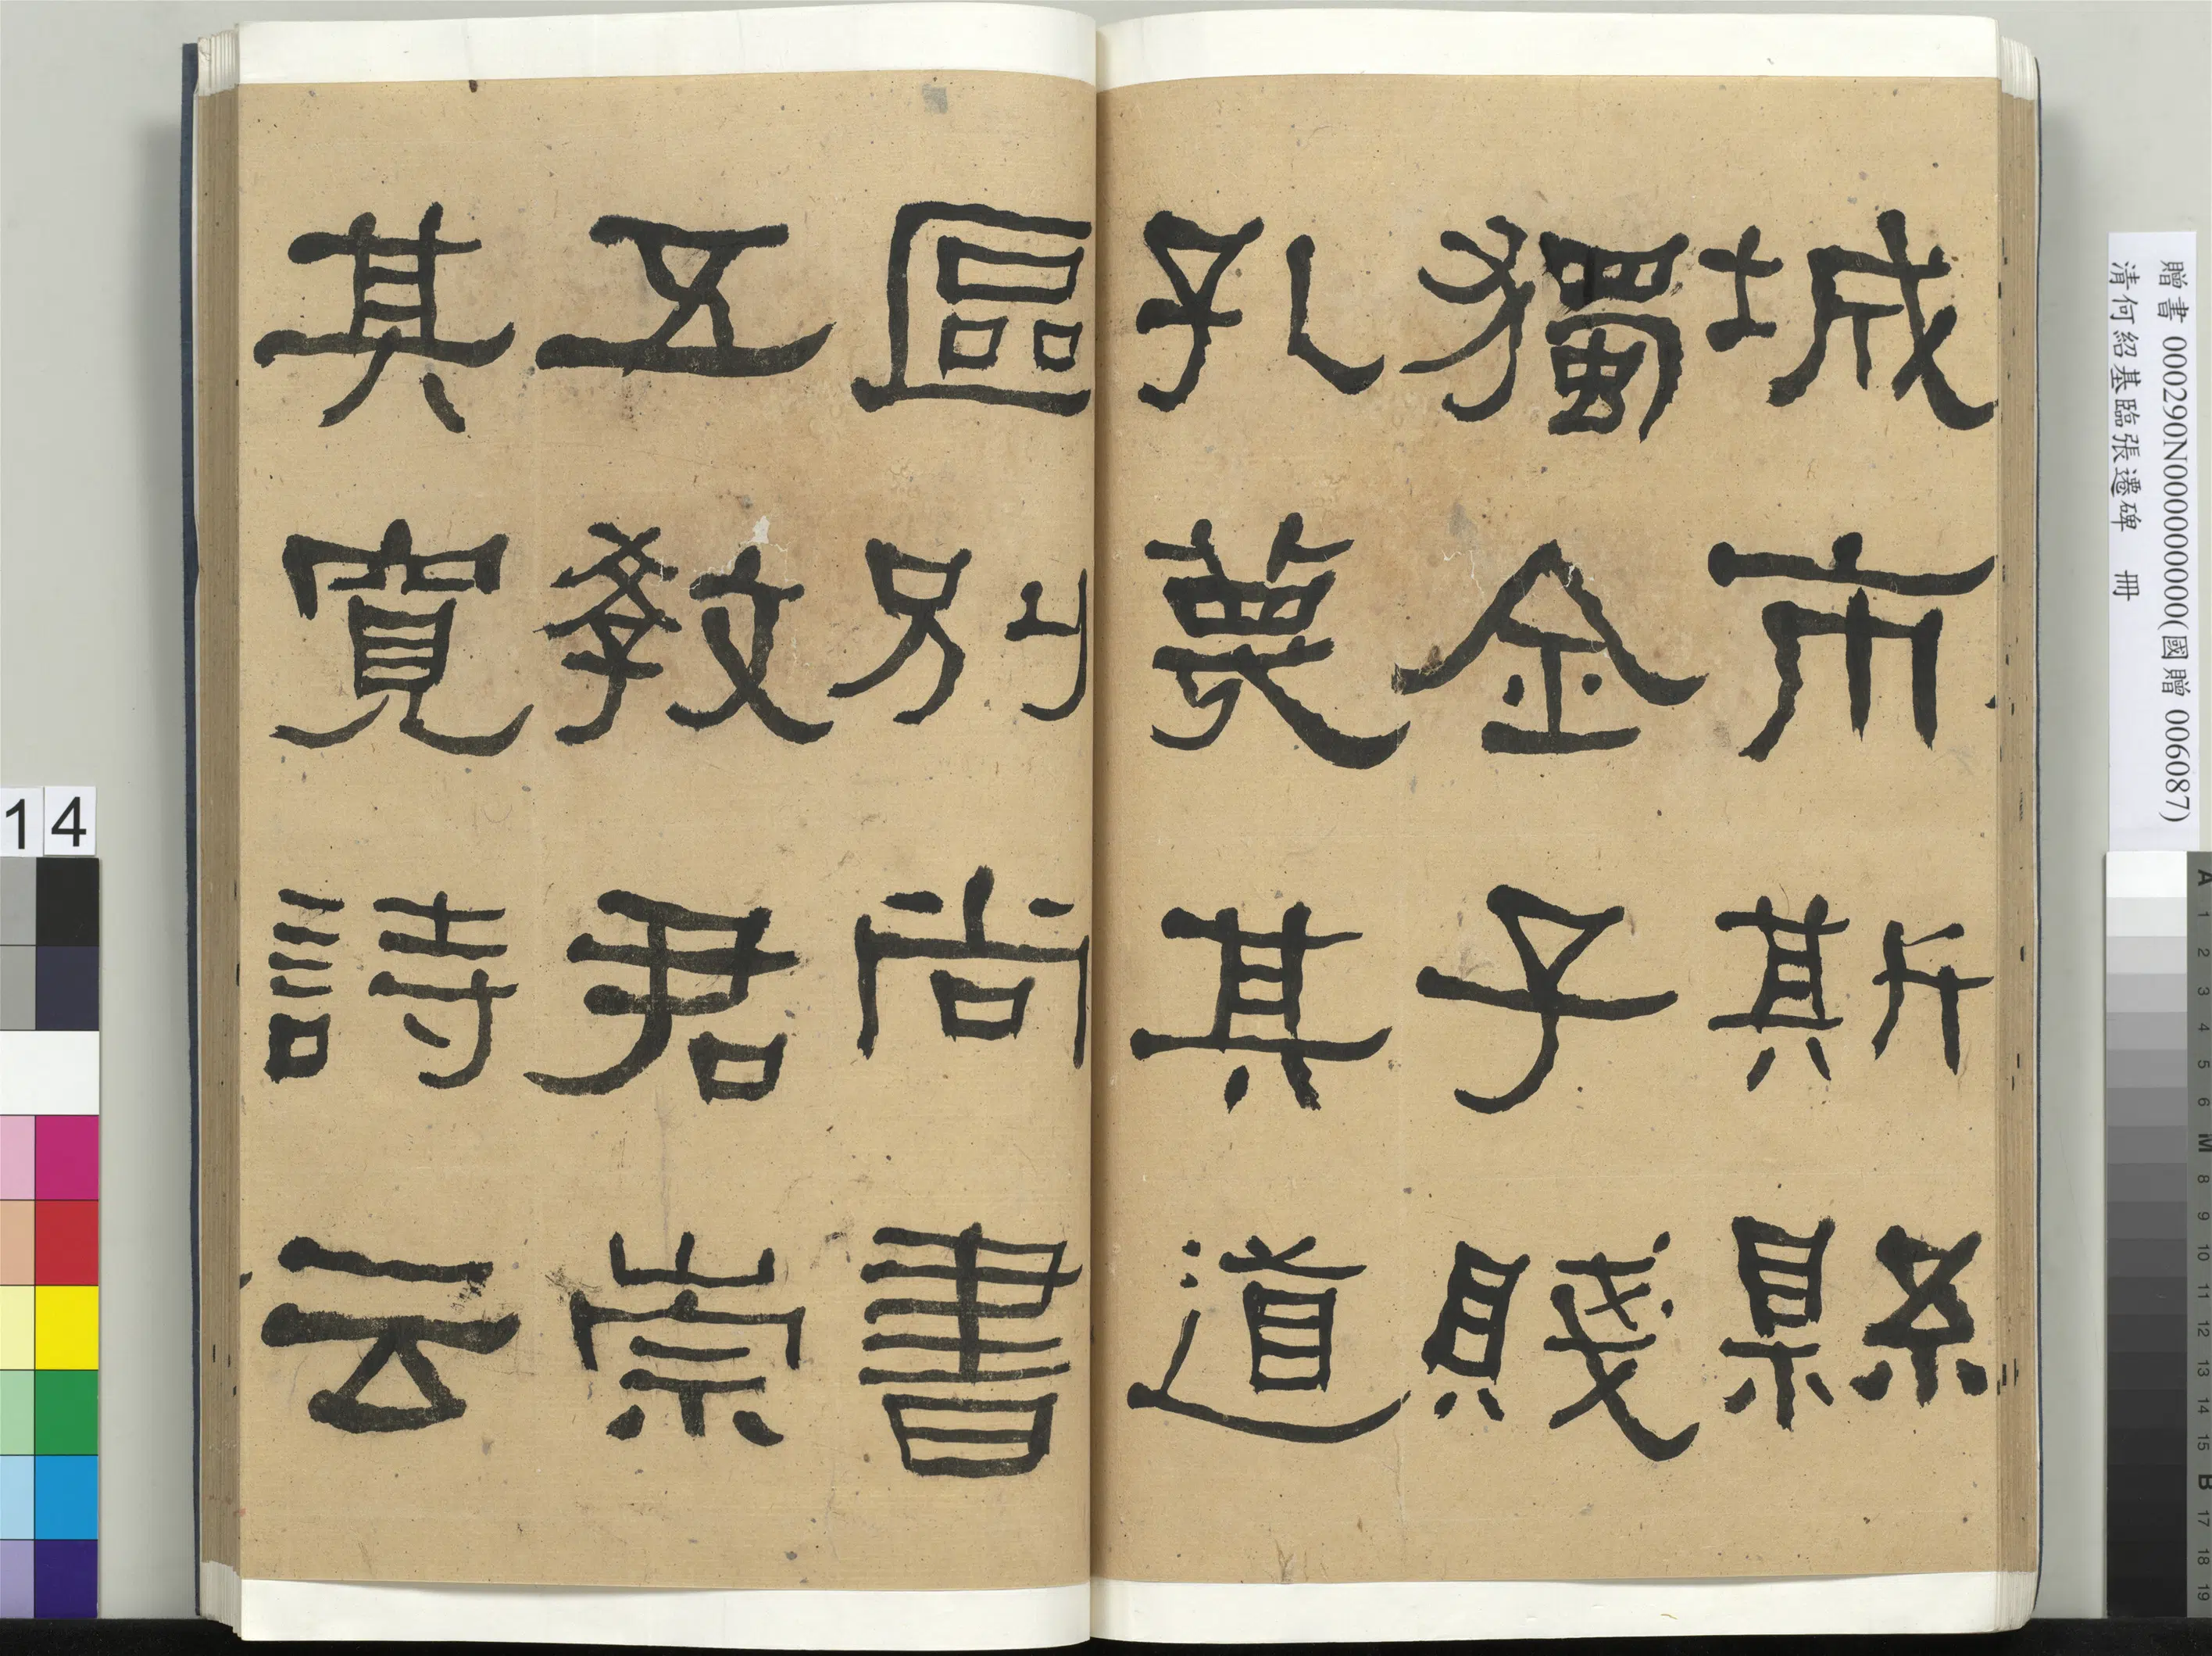 城市斯縣
獨金子賤
孔蔑其道
區別尚書
五教君崇
其寬詩云
贈書 000290N000000000(國贈 006087)
清何紹基臨張遷碑 冊
14
A 1 2 3 4 5 6 M 8 9 10 11 12 13 14 15 B 17 18 19